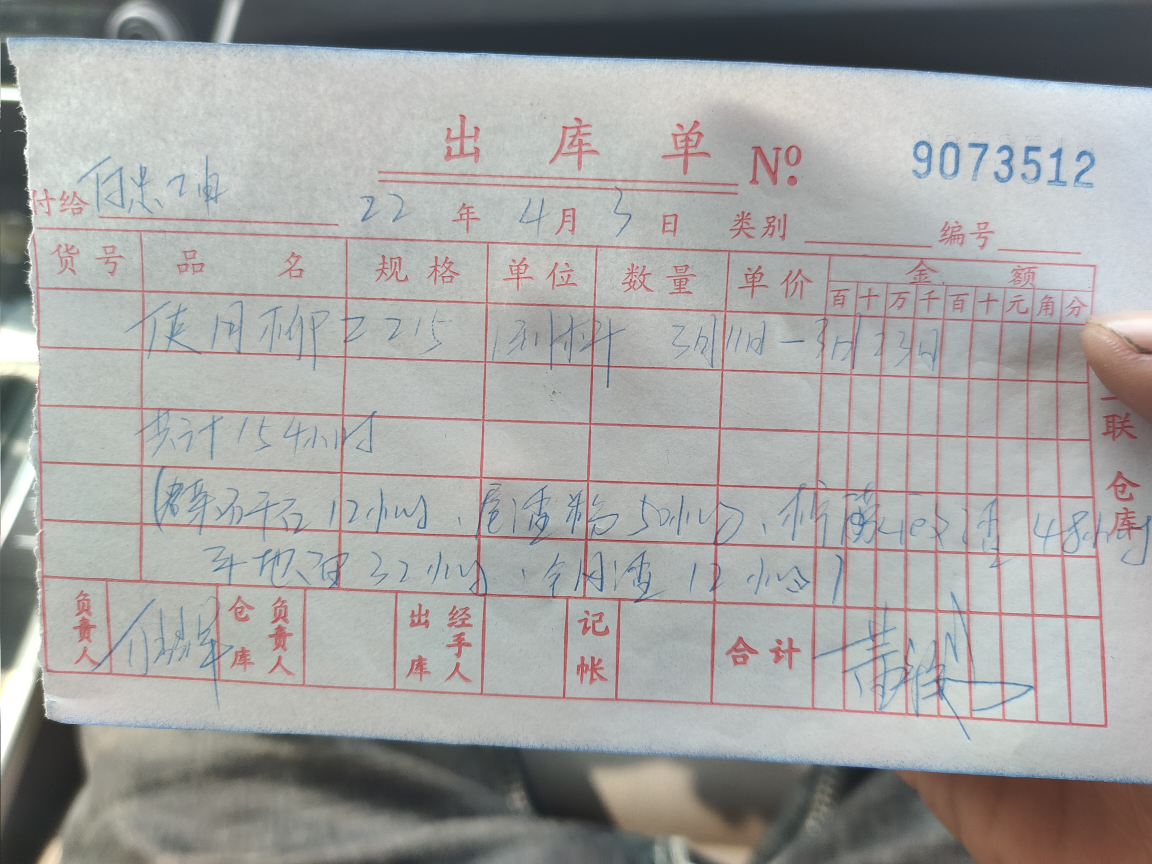 出库单 Nº 9073512
付给 付忠坤 22年4月3日 类别 编号
货号 品名 规格 单位 数量 单价 金额
百十万千百十元角分
使用柳工215 3月11日－3月23日
共计154小时
12小时、尾渣粉50小时、渣48小时
平地面32小时、渣12小时)
二联 仓库
负责人 仓库负责人 出库经手人 记帐 合计